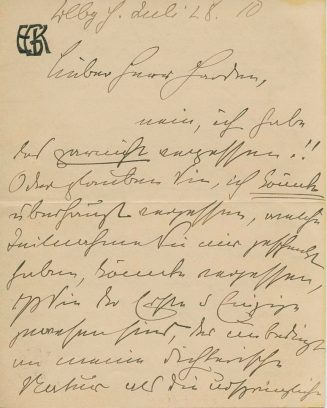 Juli 28. 10
EBK
Lieber Herr Harden,
nein, ich habe
das garnicht vergessen!!
Oder glauben Sie, ich könnte
überhaupt vergessen, welche
Teilnahme Sie mir geschenkt
haben, könnte vergessen,
daß Sie der Erste u Einzige
gewesen sind, der unbedingt
an meine dichterische
Natur als die ursprüngliche